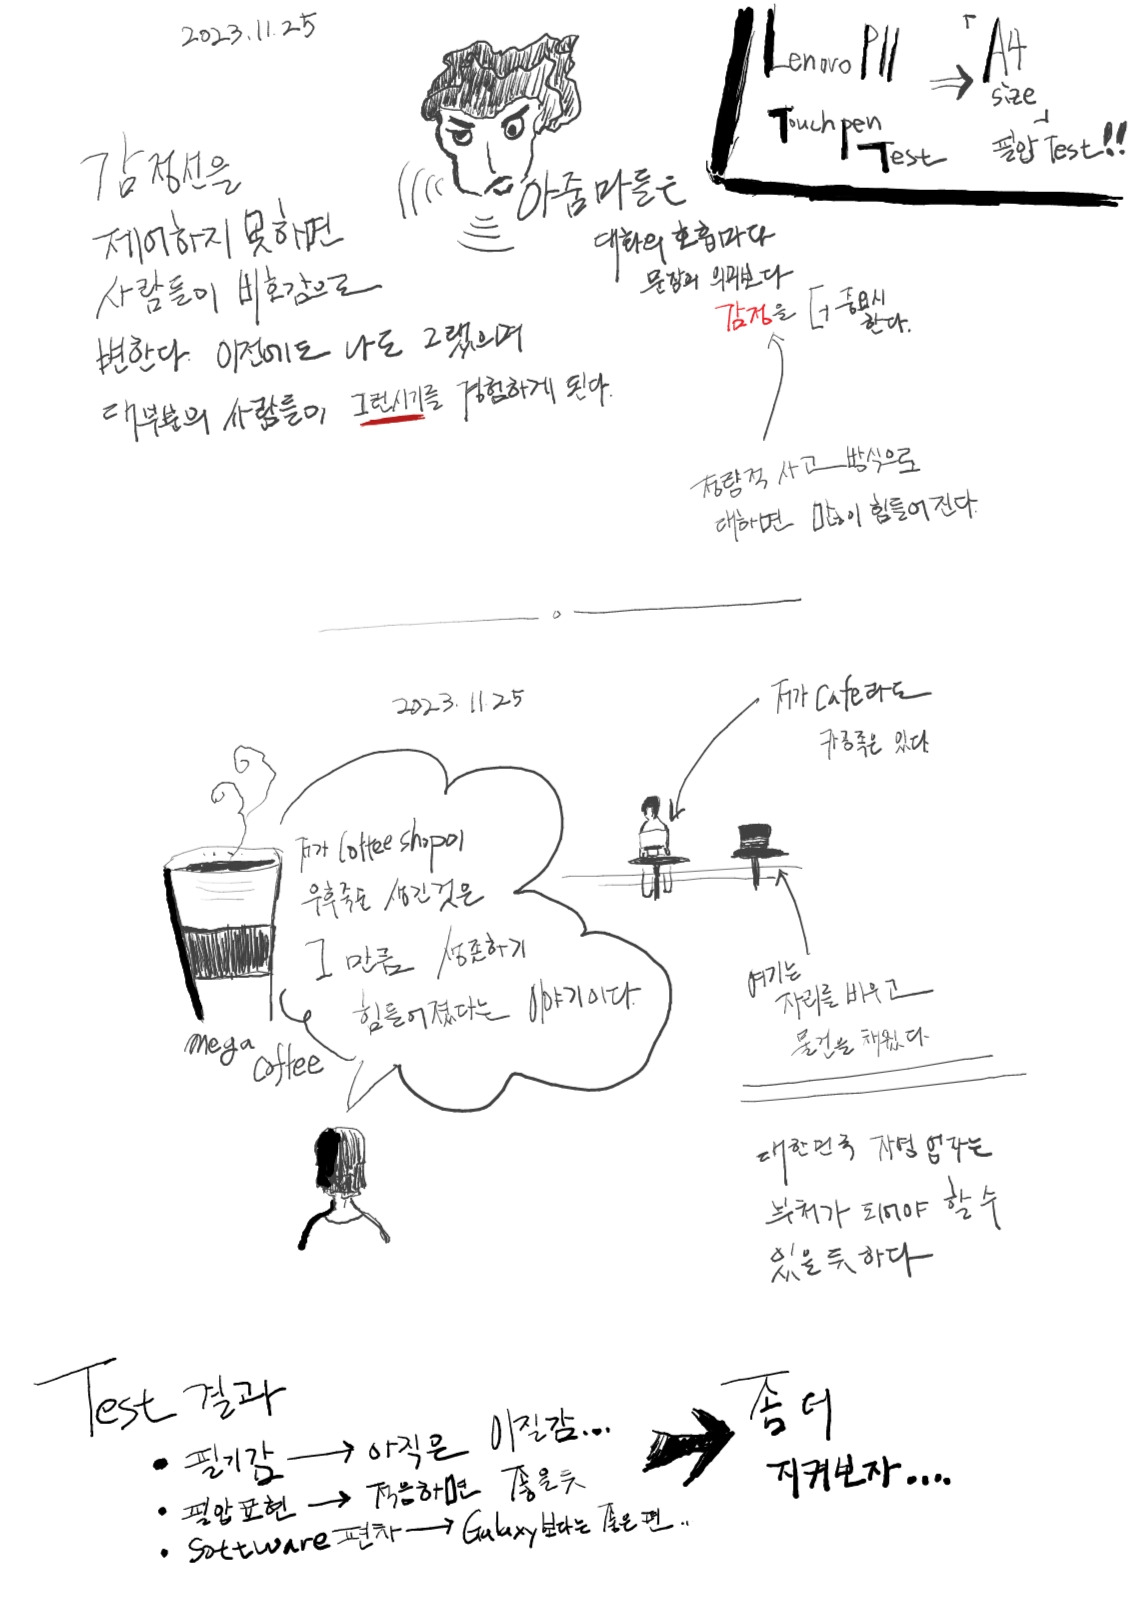 2023.11.25
Lenovo P11 ⇒ 「A4 size」
Touch pen Test
필압 Test!!
감정선을
제어하지 못하면
사람들이 비호감으로
변한다. 이전에도 나도 그랬으며
대부분의 사람들이 그런시기를 경험하게 된다.
아줌마들은
대화의 호흡마다
문장의 의미보다
감정을 더 중요시
한다.
정량적 사고 방식으로
대하면 많이 힘들어 진다.
2023.11.25
저가 Cafe라도
카공족은 있다
저가 Coffee shop이
우후죽순 생긴것은
그 만큼 생존하기
힘들어졌다는 이야기이다.
mega
coffee
여기는
자리를 비우고
물건을 채웠다.
대한민국 자영업자는
부처가 되어야 할 수
있을 듯 하다
Test 결과
• 필기감 → 아직은 이질감...
• 필압표현 → 적응하면 좋을듯
• Software 편차 → Galaxy보다는 좋은 편..
좀 더
지켜보자....